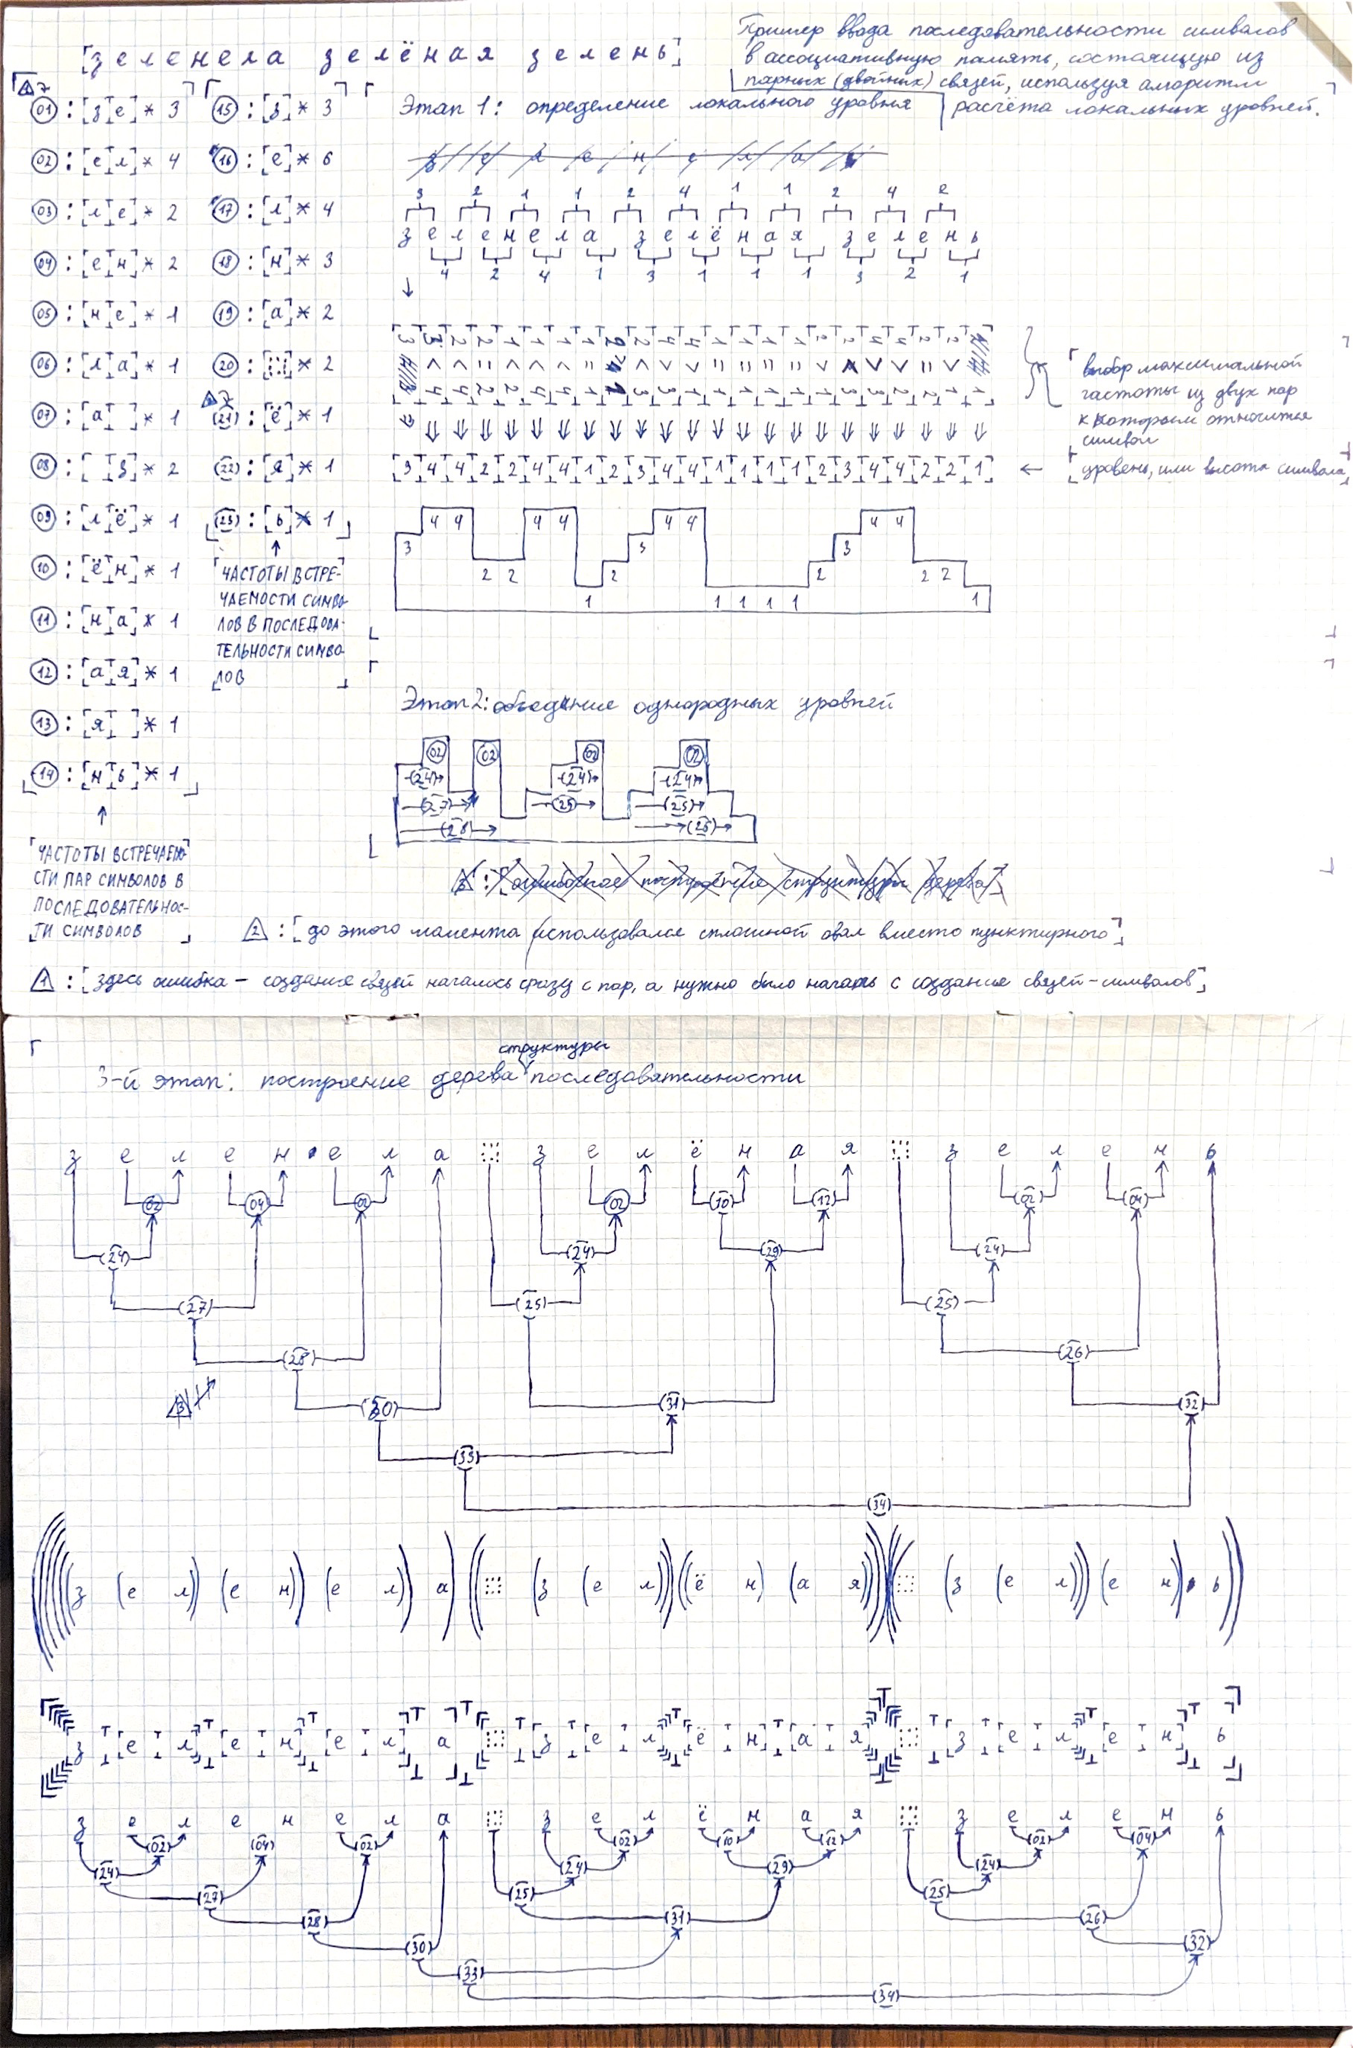 [зеленела зелёная зелень]
Пример ввода последовательности символов
в ассоциативную память, состоящую из
парных (двойных) связей, используя алгоритм
расчёта локальных уровней.
01 : [з][е] * 3
02 : [е][л] * 4
03 : [л][е] * 2
04 : [е][н] * 2
05 : [н][е] * 1
06 : [л][а] * 1
07 : [а][ ] * 1
08 : [ ][з] * 2
09 : [л][ё] * 1
10 : [ё][н] * 1
11 : [н][а] * 1
12 : [а][я] * 1
13 : [я][ ] * 1
14 : [н][ь] * 1
↑
ЧАСТОТЫ ВСТРЕЧАЕМО-
СТИ ПАР СИМВОЛОВ В
ПОСЛЕДОВАТЕЛЬНОС-
ТИ СИМВОЛОВ
15 : [з] * 3
16 : [е] * 6
17 : [л] * 4
18 : [н] * 3
19 : [а] * 2
20 : [ ] * 2
21 : [ё] * 1
22 : [я] * 1
23 : [ь] * 1
↑
ЧАСТОТЫ ВСТРЕ-
ЧАЕМОСТИ СИМВО-
ЛОВ В ПОСЛЕДОВА-
ТЕЛЬНОСТИ СИМВО-
ЛОВ
Этап 1: определение локального уровня
3 2 1 1 2 4 1 1 2 4 2
з е л е н е л а з е л ё н а я з е л е н ь
4 2 4 1 3 1 1 1 3 2 1
выбор максимальной
частоты из двух пар
к которым относится
символ
3 4 4 2 2 4 4 1 2 3 4 4 1 1 1 1 2 3 4 4 2 2 1
← [уровень, или высота символа]
4 4 4 4 4 4 4 4
3 3 3
2 2 2 2 2 2
1 1 1 1 1 1
Этап 2: объединие однородных уровней
02 02 02 02
(24) (24) (24)
(27) (25) (25)
(28) (26)
2 : [до этого момента использовался сплошной овал вместо пунктирного]
1 : [здесь ошибка – создание связей началось сразу с пар, а нужно было начать с создание связей-символов]
структуры
3-й этап: построение дерева последовательности
з е л е н е л а з е л ё н а я з е л е н ь
02 04 02 02 10 12 02 04
(24) (24) (29) (24)
(27) (25) (25)
(28) (26)
(30) (31) (32)
(33)
(34)
((((((з (е л)) (е н)) (е л)) а) ((  (з (е л))) ((ё н) (а я)))) ((( (з (е л))) (е н)) ь))
з е л е н е л а з е л ё н а я з е л е н ь
з е л е н е л а з е л ё н а я з е л е н ь
(02) (04) (02) (02) (10) (12) (02) (04)
(24) (24) (29) (24)
(27) (25) (25)
(28) (31) (26)
(30) (32)
(33)
(34)